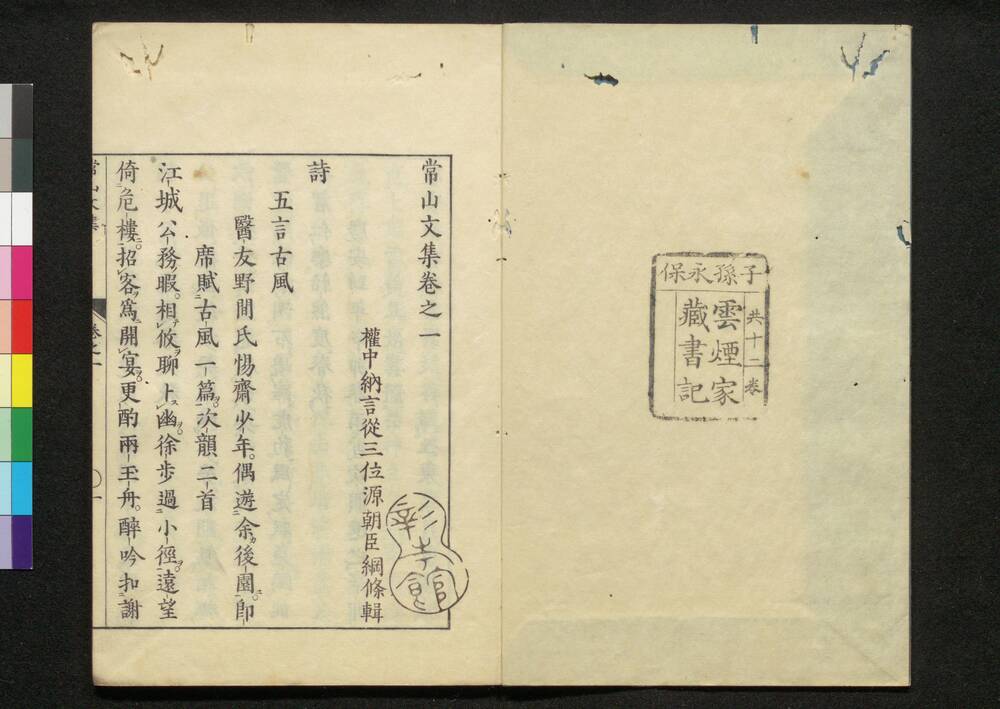 子孫永保
共十二巻
雲煙家
藏書記
常山文集卷之一
權中納言從三位源朝臣綱條輯
彰考館
詩
五言古風
醫友野間氏惕齋少年偶遊余後園即
席賦古風一篇次韻二首
江城公務暇相攸聊卜幽徐步過小徑遠望
倚危樓招客爲開宴更酌兩玉舟醉吟扣謝